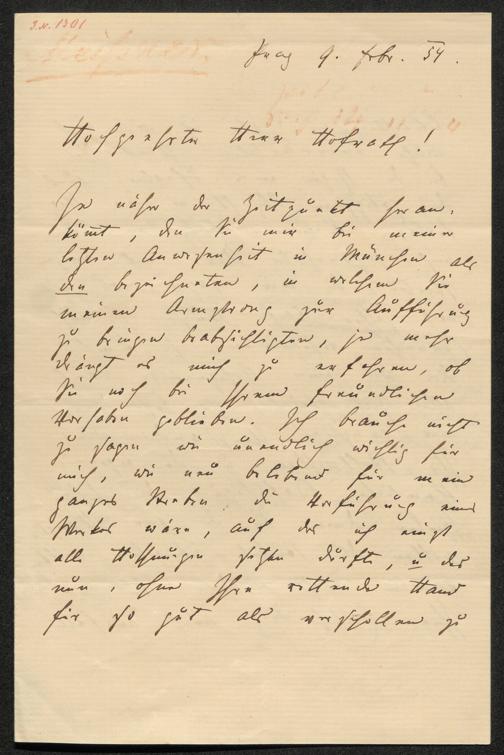 J.N. 1301
Meissner.
Prag 9. febr. 54.
Hochgeehrter Herr Hofrath!
Je näher der Zeitpunkt heran-
kömt, den Sie mir bei meiner
letzten Anwesenheit in München als
den bezeichneten, in welchem Sie
meinen Armstrong zur Aufführung
zu bringen beabsichtigten, je mehr
drängt es mich zu erfahren, ob
Sie noch bei Ihrem freundlichen
Vorhaben geblieben. Ich brauche nicht
zu sagen wie unendlich wichtig für
mich, wie neu belebend für mein
ganzes Streben die Vorführung eines
Werkes wäre, auf das ich einst
alle Hoffnungen setzen durfte, u das
nun, ohne Ihre rettende Hand
für so gut als verschollen zu